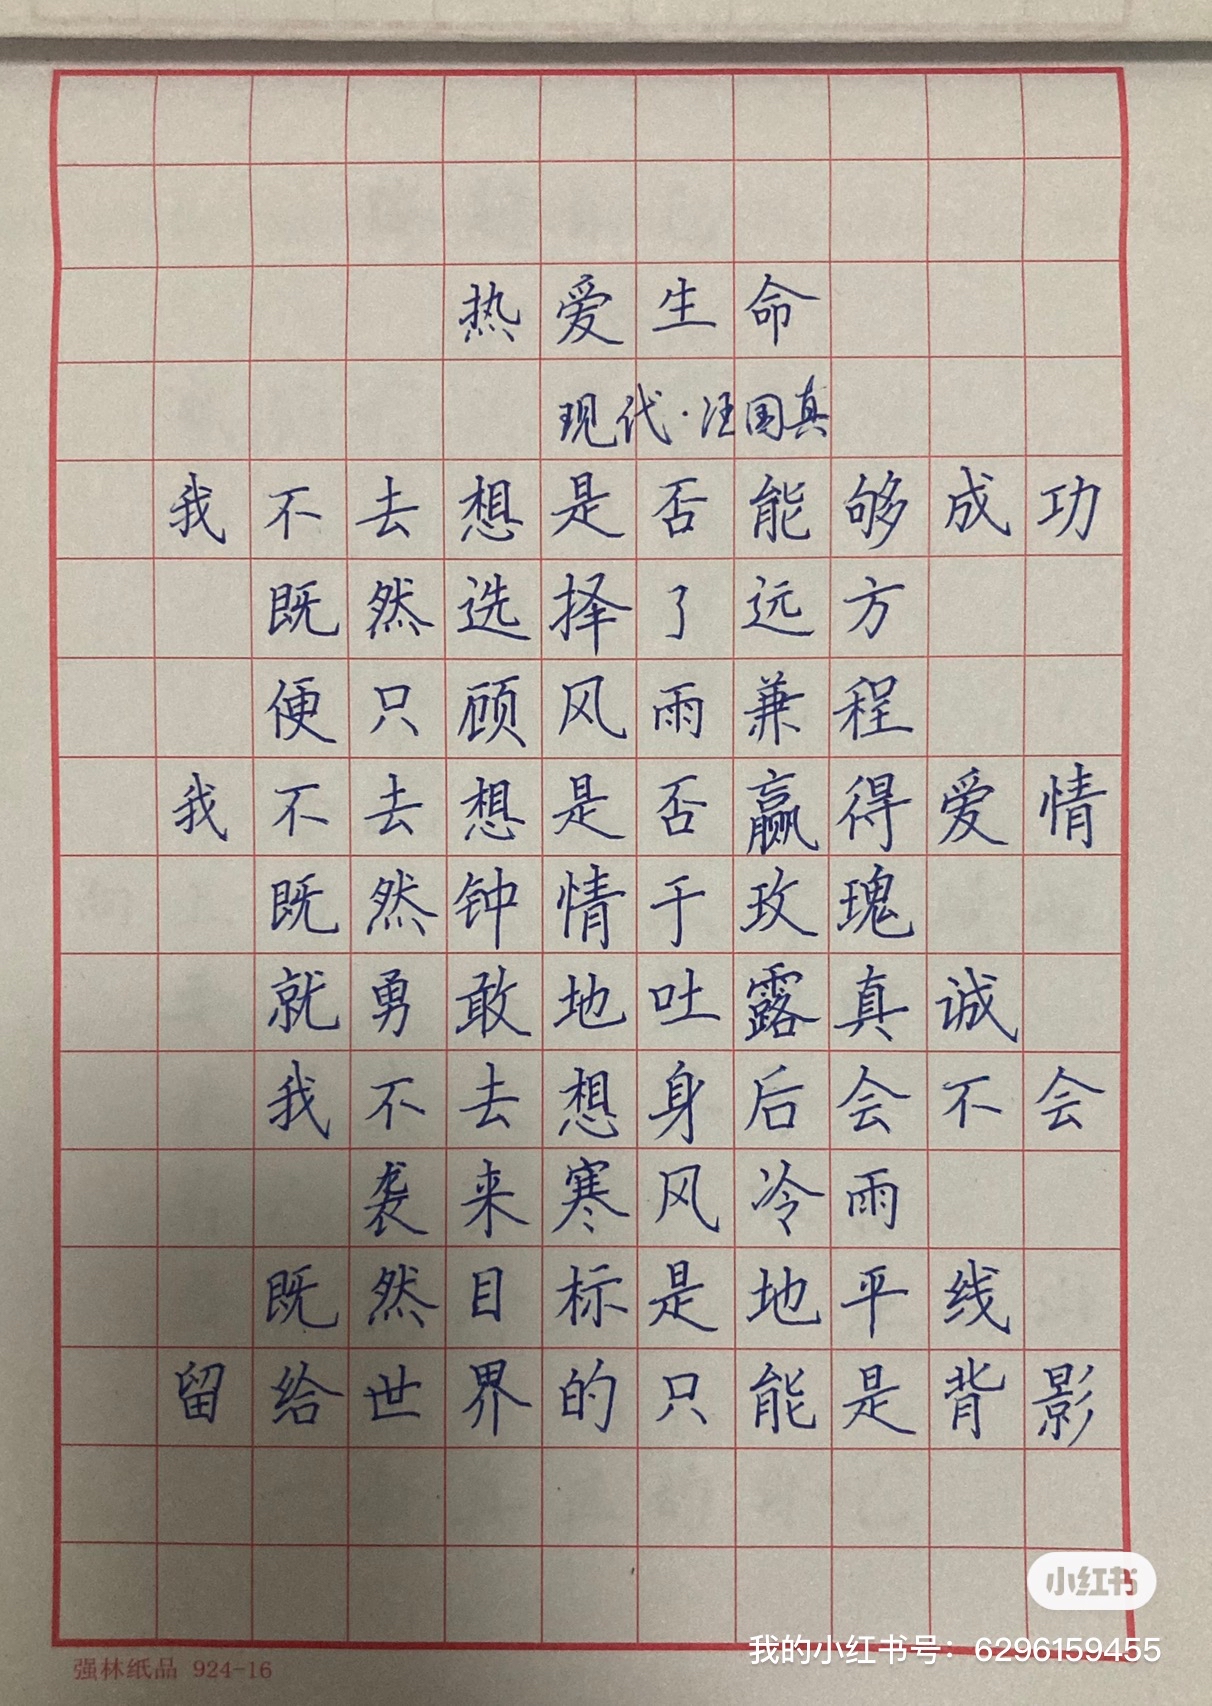 热爱生命
现代·汪国真
我不去想是否能够成功
既然选择了远方
便只顾风雨兼程
我不去想是否赢得爱情
既然钟情于玫瑰
就勇敢地吐露真诚
我不去想身后会不会
袭来寒风冷雨
既然目标是地平线
留给世界的只能是背影
小红书
我的小红书号：6296159455
强林纸品 924-16